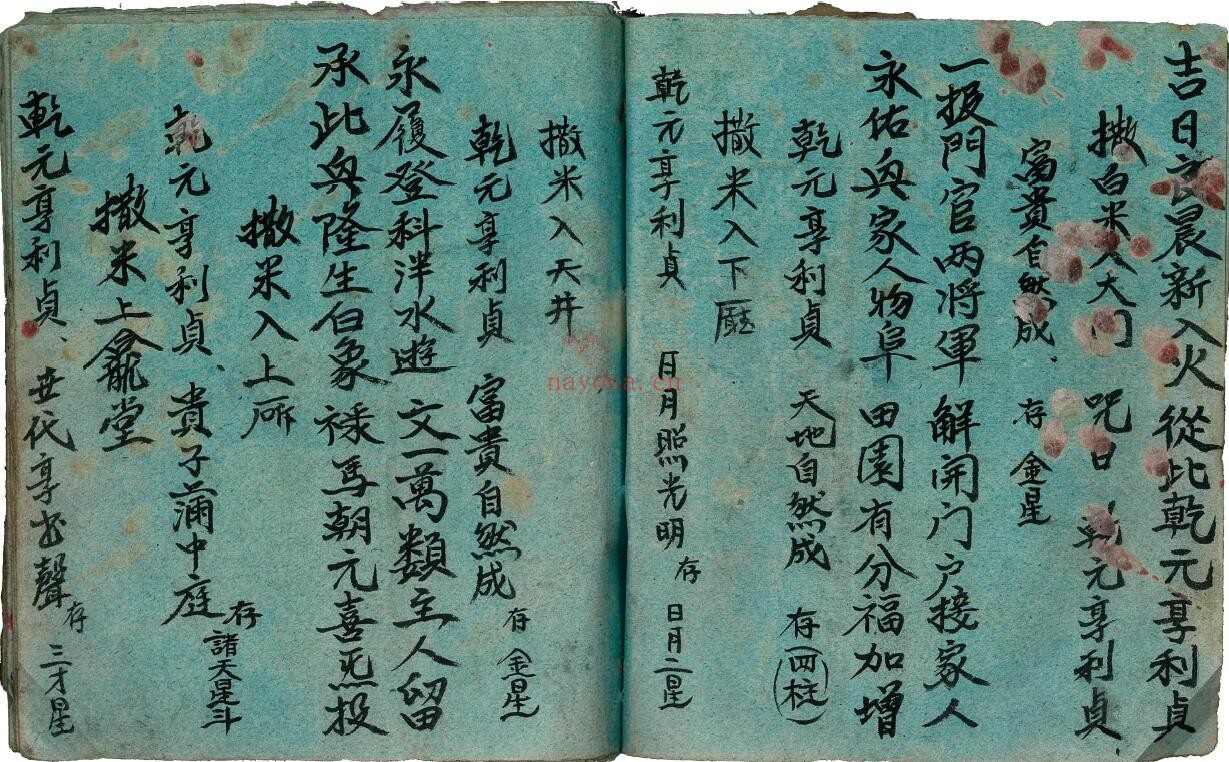 吉日良晨新入火從此乾元享利貞
撒白米入大门 咒曰 乾元享利貞
富貴自然成、 存 金星
一扱門官两将軍 解開门户接家人
永佑與家人物阜 田園有分福加增
乾元享利貞 天地自然成 存(四柱)
撒米入下厛
乾元享利貞 日月照光明 存 日月二星
撒米入天井
乾元享利貞 富貴自然成 存 金星
永履登科泮水遊 文一萬類主人留
承此與隆生白象 禄馬朝元喜炁投
撒米入上所
乾元享利貞、貴子滿中庭 存 諸天星斗
撒米上龕堂
乾元享利貞、世代享书聲 存 三才星
nayona.cn